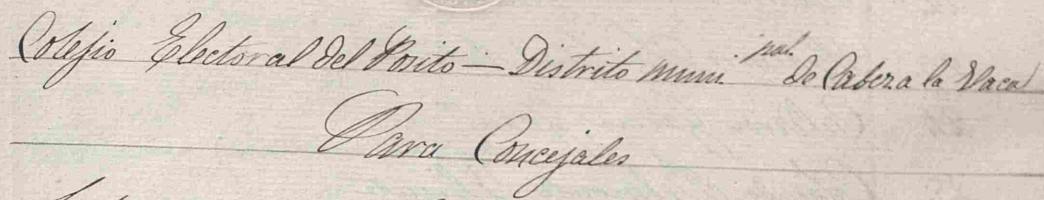 Colejio Electoral del Posito — Distrito muni.pal de Cabeza la Vaca
Para Concejales